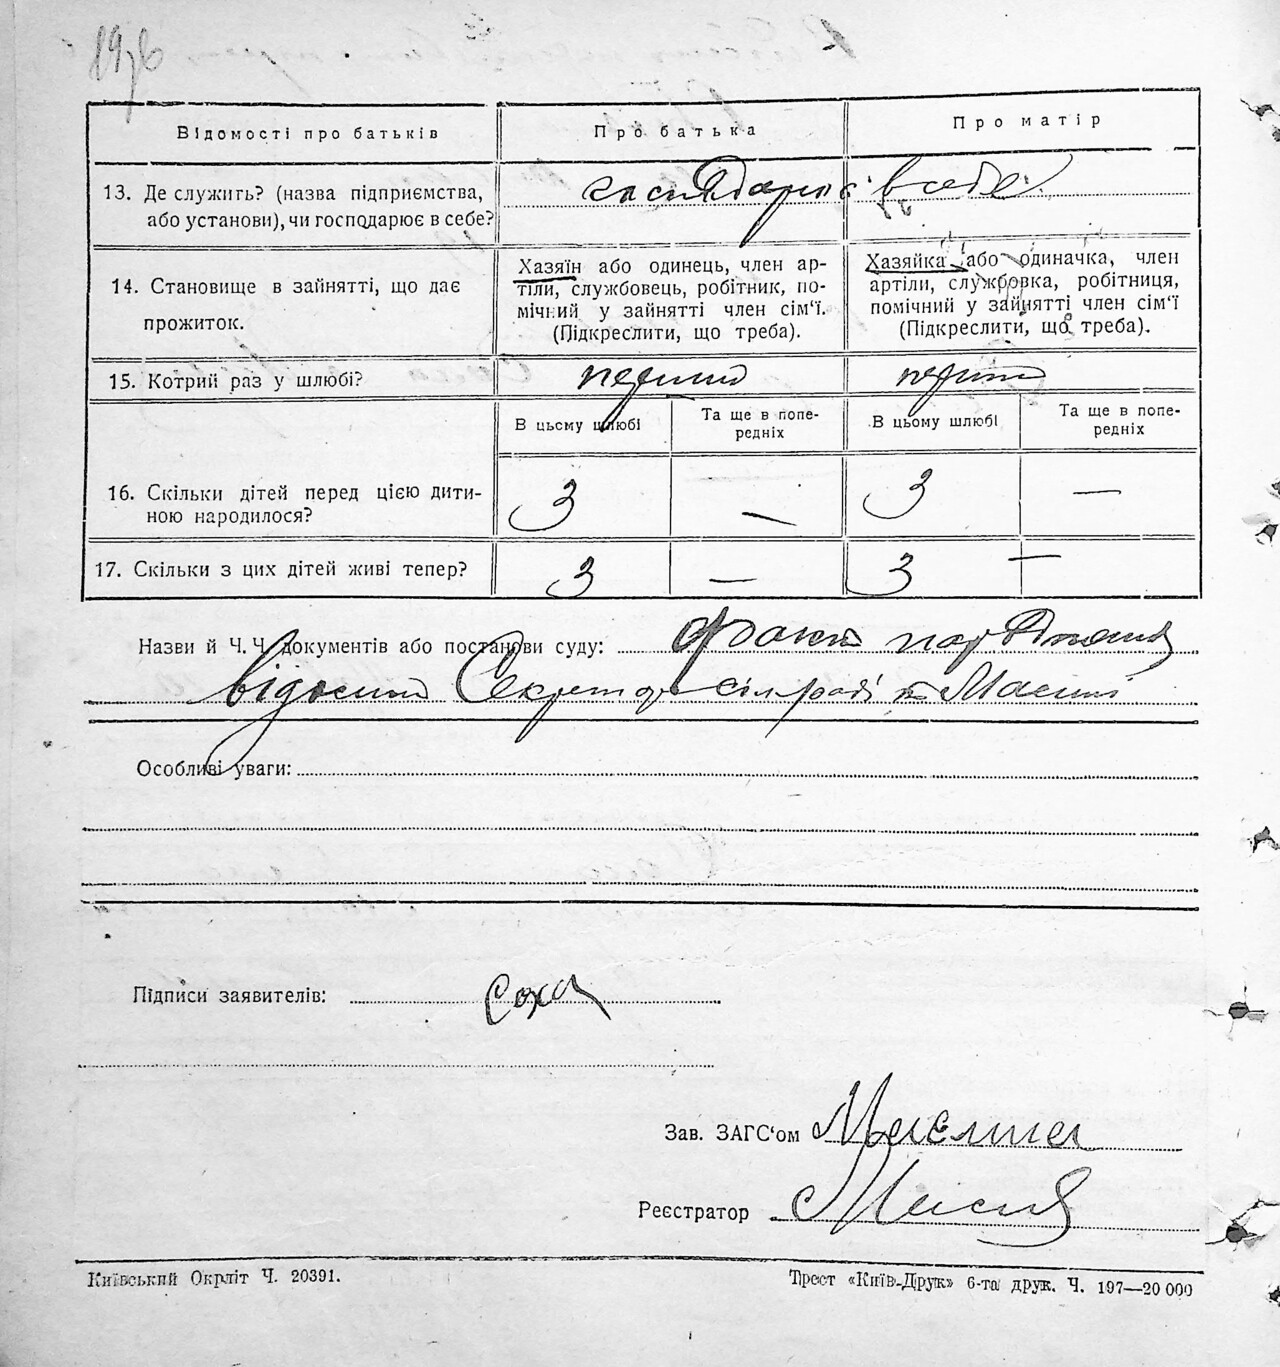 Відомості про батьків
Про батька
Про матір
13. Де служить? (назва підприємства,
або установи), чи господарює в себе?
господарює в себе
14. Становище в зайнятті, що дає
прожиток.
Хазяїн або одинець, член ар-
тілі, службовець, робітник, по-
мічний у зайнятті член сім'ї.
(Підкреслити, що треба).
Хазяйка або одиначка, член
артіли, службовка, робітниця,
помічний у зайнятті член сім'ї
(Підкреслити, що треба).
15. Котрий раз у шлюбі?
перший
перший
В цьому шлюбі
Та ще в попе-
редніх
В цьому шлюбі
Та ще в попе-
редніх
16. Скільки дітей перед цією дити-
ною народилося?
3 — 3 —
17. Скільки з цих дітей живі тепер?
3 — 3 —
Назви й Ч.Ч. документів або постанови суду: Факт народження
відомий Секретарю сільради
Особливі уваги:
Підписи заявителів: Соха
Зав. ЗАГС'ом
Реєстратор
Київський Окрліт Ч. 20391.
Трест «Київ-Друк» 6-та друк. Ч. 197—20 000